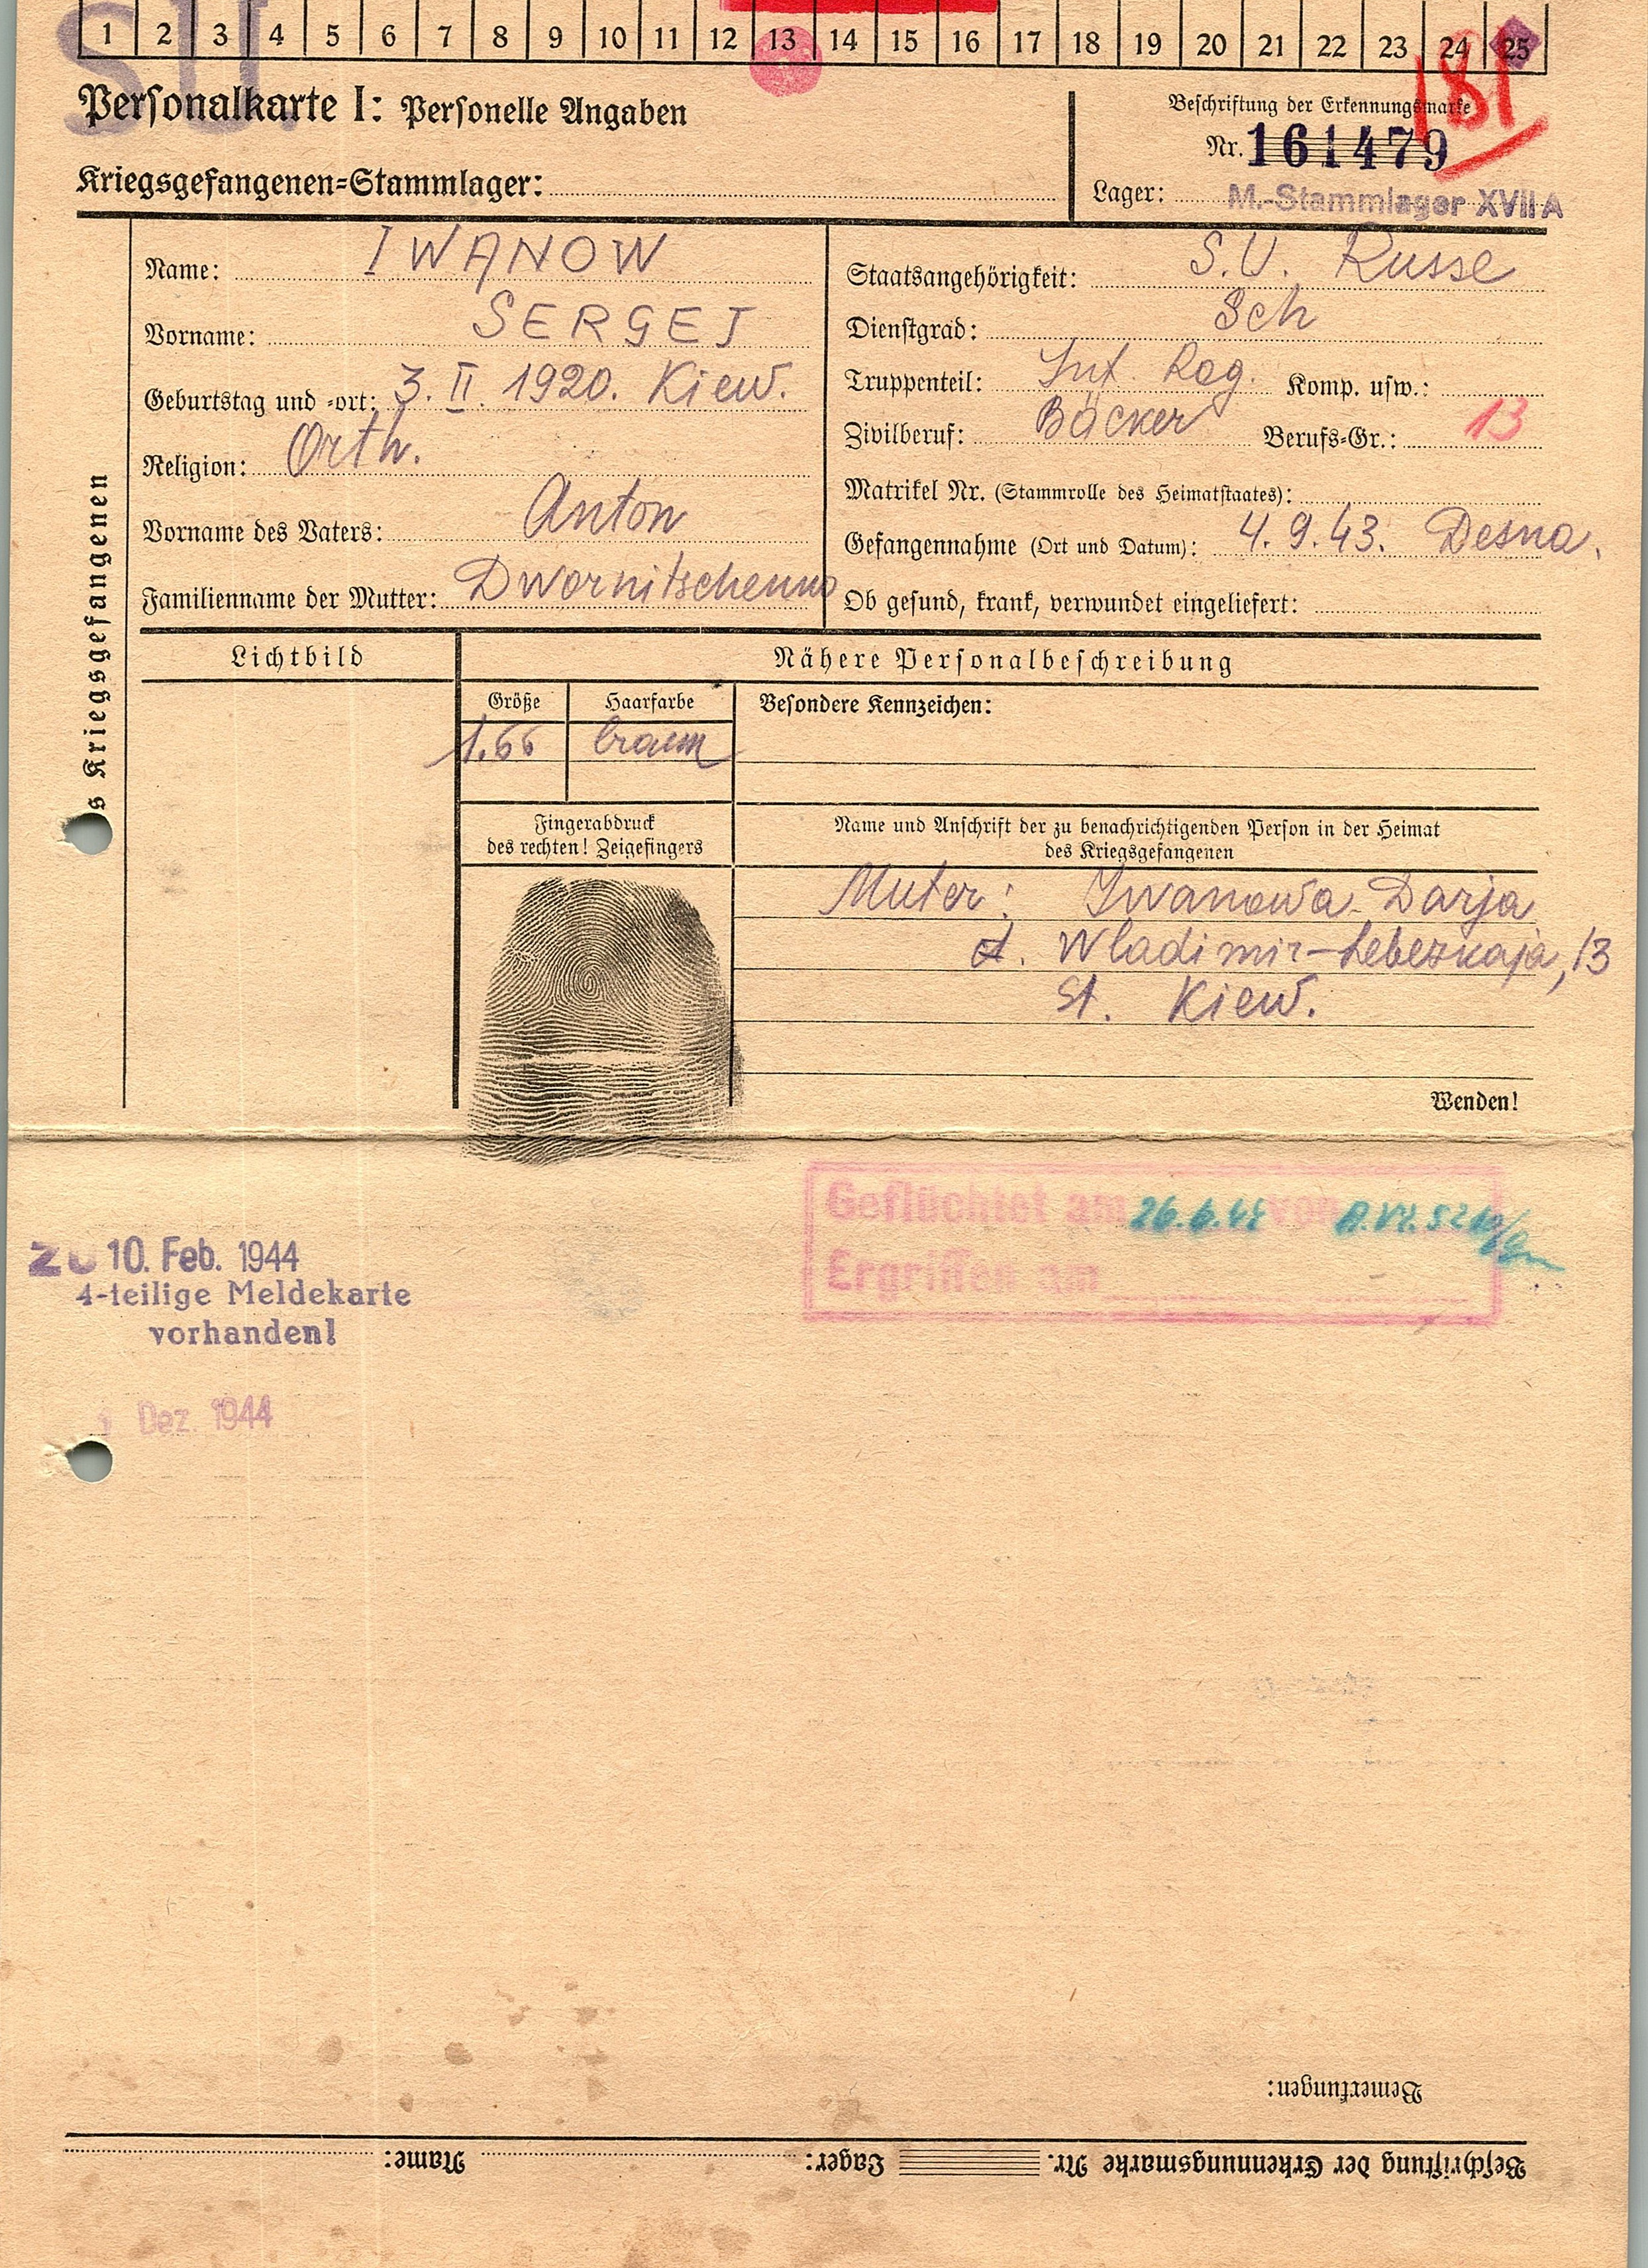 1 2 3 4 5 6 7 8 9 10 11 12 13 14 15 16 17 18 19 20 21 22 23 24 25
SU.
181
Personalkarte I: Personelle Angaben
Beschriftung der Erkennungsmarke
Nr. 161479
Kriegsgefangenen-Stammlager:
Lager: M.-Stammlager XVII A
Name: IWANOW
Staatsangehörigkeit: S.U. Russe
Vorname: SERGEJ
Dienstgrad: Sch
Geburtstag und -ort: 3. II. 1920. Kiew.
Truppenteil: Inf. Reg. Komp. usw.:
Zivilberuf: Bäcker Berufs-Gr.: 13
Religion: Orth.
Matrikel Nr. (Stammrolle des Heimatstaates):
Vorname des Vaters: Anton
Gefangennahme (Ort und Datum): 4.9.43. Desna.
Familienname der Mutter: Dwornitschenko
Ob gesund, krank, verwundet eingeliefert:
s Kriegsgefangenen
Lichtbild
Nähere Personalbeschreibung
Größe
Haarfarbe
Besondere Kennzeichen:
1.66
braun
Fingerabdruck
des rechten! Zeigefingers
Name und Anschrift der zu benachrichtigenden Person in der Heimat
des Kriegsgefangenen
Muter: Iwanowa Darja
Wladimir-Lebeskaja, 13
St. Kiew.
Wenden!
Geflüchtet am 26.6.44 von
Ergriffen am
10. Feb. 1944
4-teilige Meldekarte
vorhanden!
Dez. 1944
Bemerkungen:
Beschriftung der Erkennungsmarke Nr. Lager: Name: